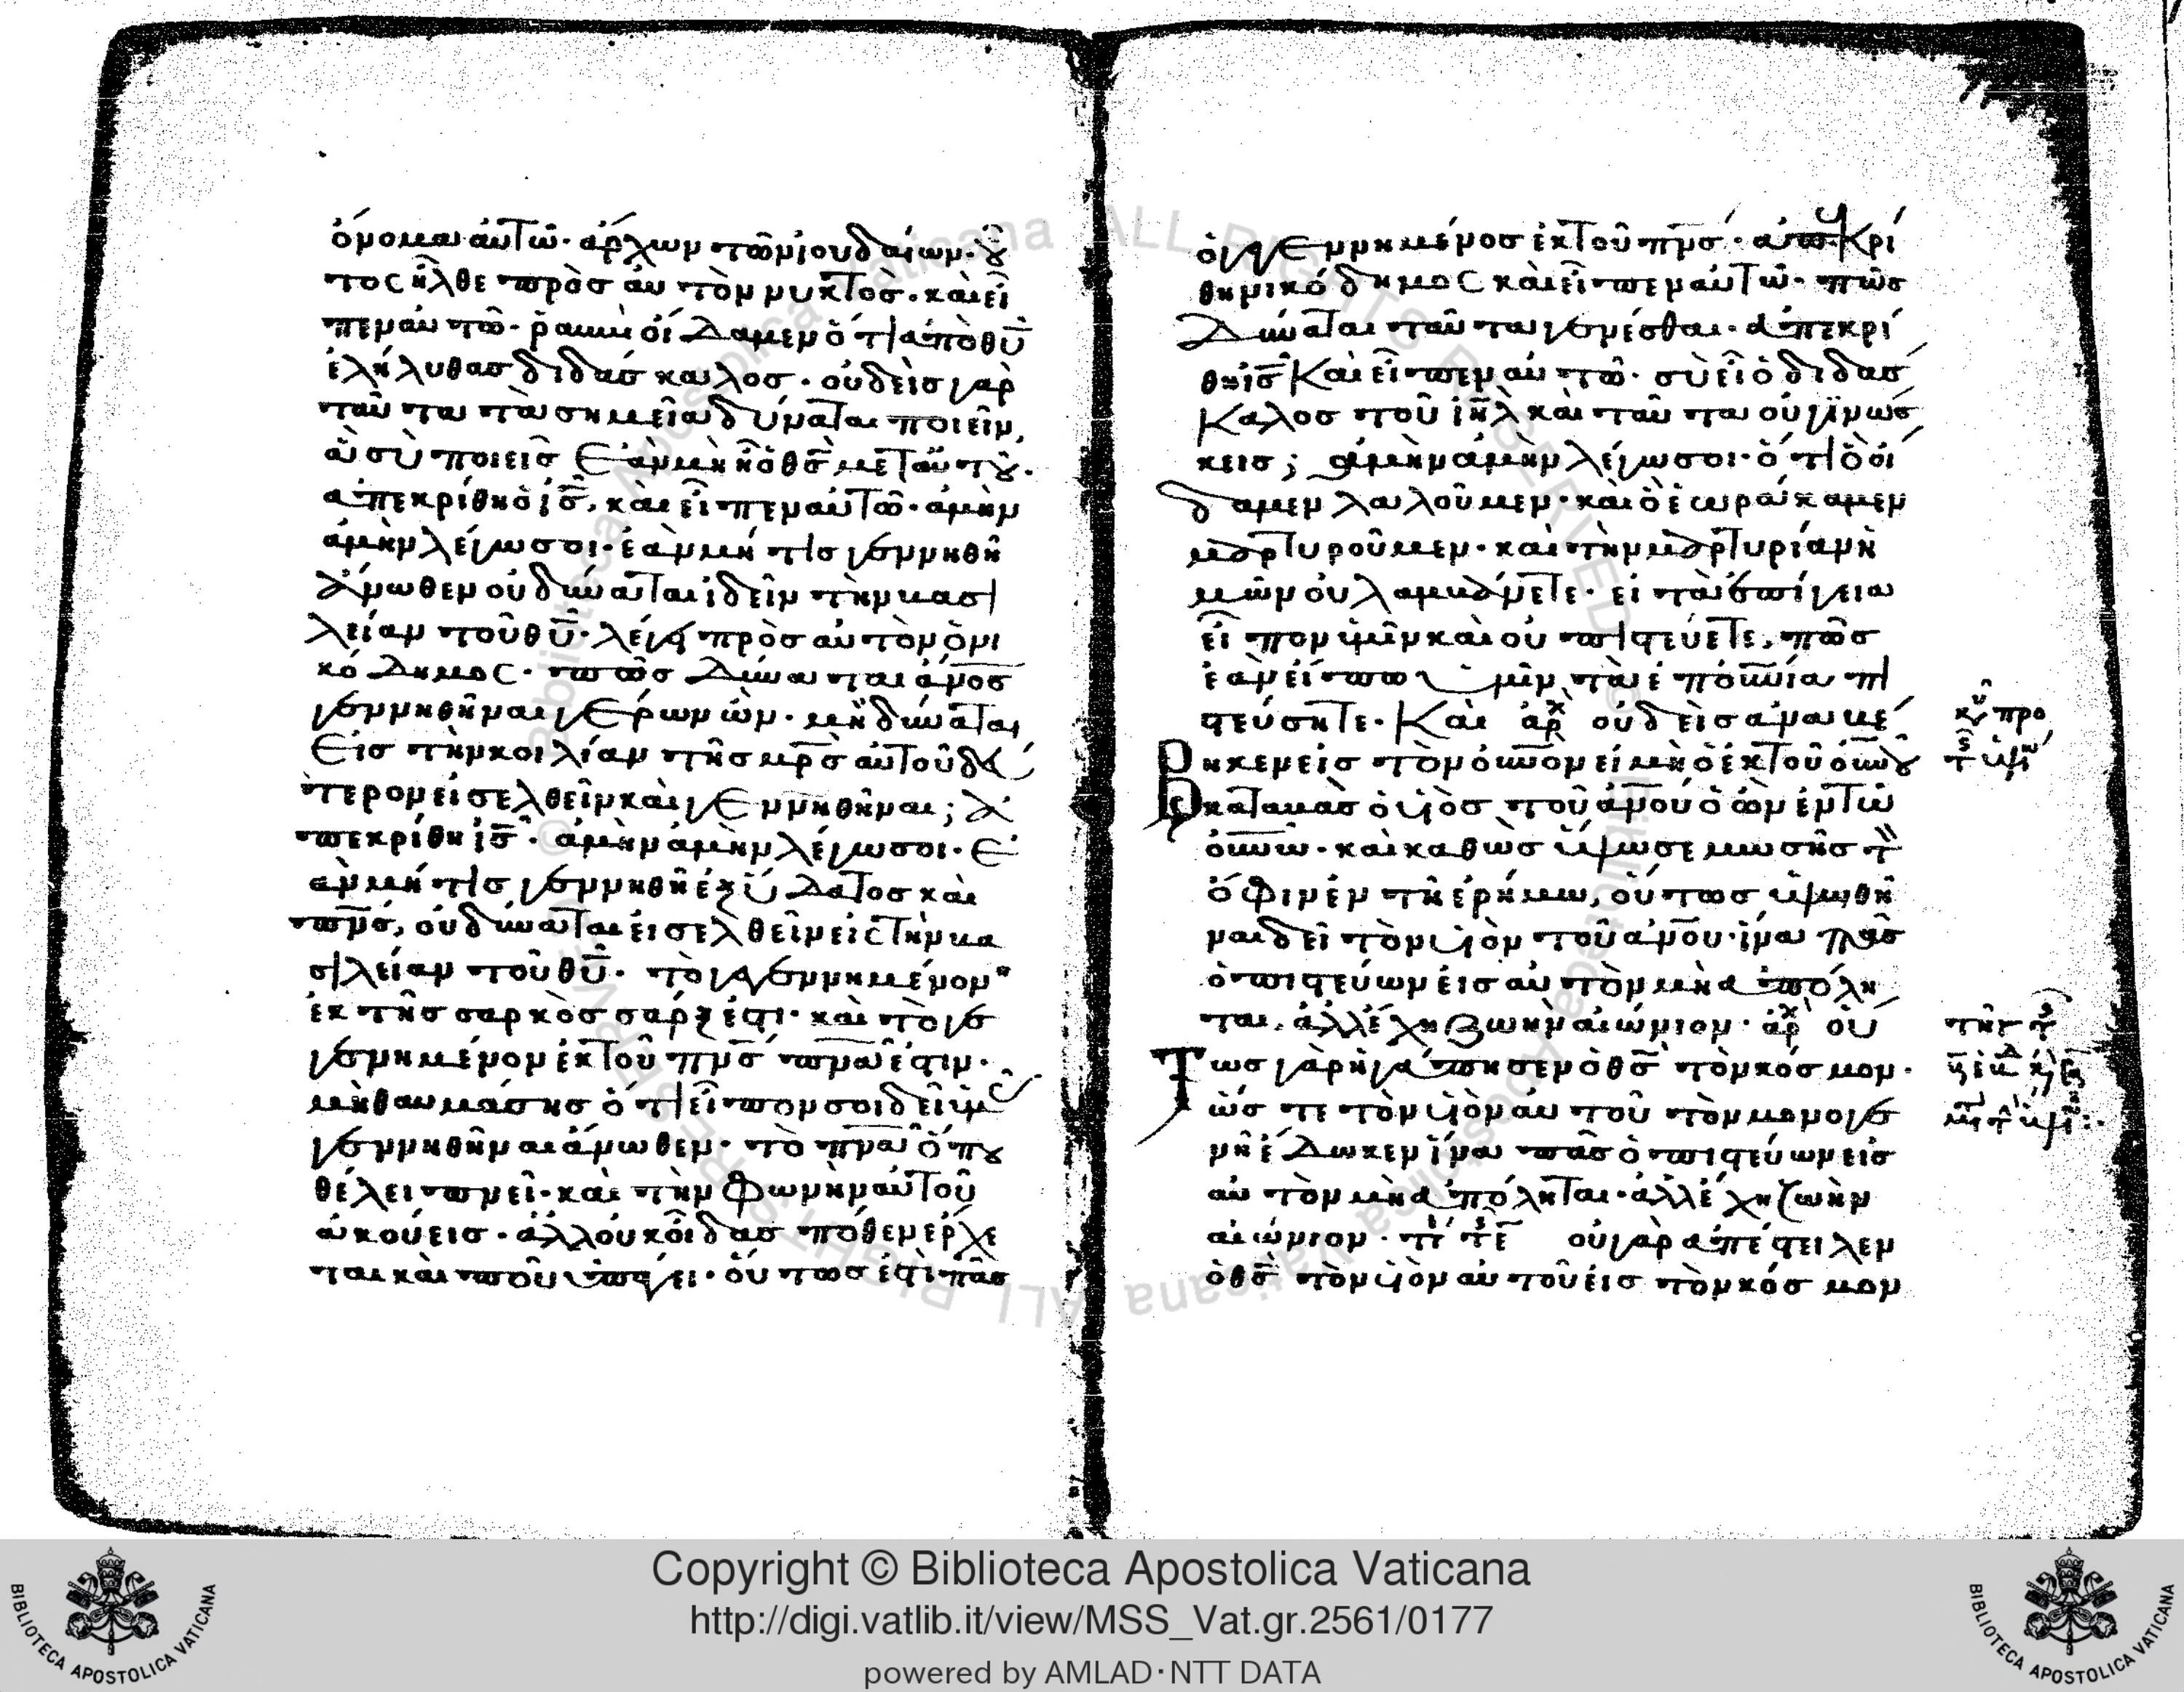 ὄνομα αὐτῶ· ἄρχων τῶν ἰουδαίων· οὗ
τος ἦλθε πρὸς αὐτὸν νυκτὸς· καὶ εἶ
πεν αὐτῶ· ῥαββὶ οἴδαμεν ὅτι ἀπὸ θ̅υ̅
ἐλήλυθας διδάσκαλος· οὐδεὶς γὰρ
ταῦτα τὰ σημεῖα δύναται ποιεῖν,
ἃ σὺ ποιεῖς ἐὰν μὴ ἦ ὁ θ̅ς̅ μετ' αὐτοῦ·
ἀπεκρίθη ὁ ι̅ς̅, καὶ εἶπεν αὐτῶ· ἀμὴν
ἀμὴν λέγω σοι· ἐὰν μή τις γεννηθῆ
ἄνωθεν οὐ δύναται ἰδεῖν τὴν βασι
λείαν τοῦ θ̅υ̅· λέγει πρὸς αὐτὸν ὁ νι
κόδημος· πῶς δύναται α̅ν̅ο̅ς̅
γεννηθῆναι γέρων ὤν· μὴ δύναται
εἰς τὴν κοιλίαν τῆς μ̅ρ̅ς̅ αὐτοῦ δεύ
τερον εἰσελθεῖν καὶ γεννηθῆναι; ἀ
πεκρίθη ι̅ς̅· ἀμὴν ἀμὴν λέγω σοι· ἐ
ὰν μή τις γεννηθῆ ἐξ ὕδατος καὶ
π̅ν̅ς̅, οὐ δύναται εἰσελθεῖν εἰς τὴν βα
σιλείαν τοῦ θ̅υ̅· τὸ γεγεννημένον
ἐκ τῆς σαρκὸς σάρξ ἐστι· καὶ τὸ γε
γενημένον ἐκ τοῦ π̅ν̅ς̅ π̅ν̅α̅ ἐστιν·
μὴ θαυμάσης ὅτι εἶπον σοι δεῖ ὑμᾶς
γεννηθῆναι ἄνωθεν· τὸ π̅ν̅α̅ ὅπου
θέλει πνεῖ· καὶ τὴν φωνὴν αὐτοῦ
ἀκούεις· ἀλλ' οὐκ οἶδας πόθεν ἔρχε
ται καὶ ποῦ ὑπάγει· οὕτως ἐστὶ πᾶς
ὁ γεγεννημένος ἐκ τοῦ π̅ν̅ς̅· ἀπεκρί
θη νικόδημος καὶ εἶπεν αὐτῶ· πῶς
δύναται ταῦτα γενέσθαι· ἀπεκρί
θη ι̅ς̅ καὶ εἶπεν αὐτῶ· σὺ εἶ ὁ διδάσ
καλος τοῦ ι̅η̅λ̅ καὶ ταῦτα οὐ γινώσ
κεις; ἀμὴν ἀμὴν λέγω σοι· ὅτι ὃ οἴ
δαμεν λαλοῦμεν· καὶ ὃ ἑωράκαμεν
μαρτυροῦμεν· καὶ τὴν μαρτυρίαν ἡ
μῶν οὐ λαμβάνετε· εἰ τὰ ἐπίγεια
εἶπον ὑμῖν καὶ οὐ πιστεύετε, πῶς
ἐὰν εἴπω ὑμῖν τὰ ἐπου̅ν̅ια πι
στεύσητε· καὶ ἀρχ οὐδεὶς ἀναβέ
βηκεν εἰς τὸν ο̅υ̅ν̅ο̅ν̅ εἰ μὴ ὁ ἐκ τοῦ ο̅υ̅ν̅ο̅υ̅
καταβὰς ὁ υἱὸς τοῦ α̅ν̅ο̅υ̅ ὁ ὢν ἐν τῶ
ο̅υ̅ν̅ω̅· καὶ καθὼς ὕψωσε μωσῆς τὸν
ὄφιν ἐν τῆ ἐρήμω, οὕτως ὑψωθῆ
ναι δεῖ τὸν υἱὸν τοῦ α̅ν̅ο̅υ̅· ἵνα πᾶς
ὁ πιστεύων εἰς αὐτὸν μὴ ἀπόλη
ται, ἀλλ' ἔχη ζωὴν αἰώνιον· ἀρχ οὕ
τως γὰρ ἠγάπησεν ὁ θ̅ς̅ τὸν κόσμον·
ὥστε τὸν υἱὸν αὐτοῦ τὸν μονογε
νῆ ἔδωκεν ἵνα πᾶς ὁ πιστεύων εἰς
αὐτὸν μὴ ἀπόληται· ἀλλ' ἔχη ζωὴν
αἰώνιον· οὐ γὰρ ἀπέστειλεν
ὁ θ̅ς̅ τὸν υἱὸν αὐτοῦ εἰς τὸν κόσμον
Copyright © Biblioteca Apostolica Vaticana
http://digi.vatlib.it/view/MSS_Vat.gr.2561/0177
powered by AMLAD·NTT DATA
BIBLIOTECA APOSTOLICA VATICANA
BIBLIOTECA APOSTOLICA VATICANA